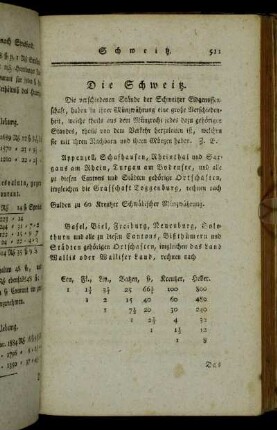 Schweitz. 511
Die Schweitz.
Die verschiedenen Stände der Schweitzer Eidgenossen-
schaft, haben in ihrer Münzwährung eine große Verschieden-
heit, welche theils aus dem Münzrecht jedes dazu gehörigen
Standes, theils aus dem Verkehr herzuleiten ist, welchen
sie mit ihren Nachbarn und ihren Münzen haben. Z. B.
Appenzell, Schafhausen, Rheinthal und Sar-
gans am Rhein, Turgau am Bodensee, und alle
zu diesen Cantons und Städten gehörige Ortschaften,
imgleichen die Grafschaft Toggenburg, rechnen nach
Gulden zu 60 Kreutzer Schwäbischer Münzwährung.
Basel, Biel, Freiburg, Neuenburg, Solo-
thurn und alle zu diesen Cantons, Bißthümern und
Städten gehörigen Ortschaften, imgleichen das Land
Wallis oder Walliser Land, rechnen nach
Fl., Liv., Batzen, ß, Kreutzer, Heller.
1 1⅔ 3⅓ 25 66⅔ 100 800
1 2 15 40 60 480
1 7½ 20 30 240
1 2⅔ 4 32
1 1½ 12
1 8
Das